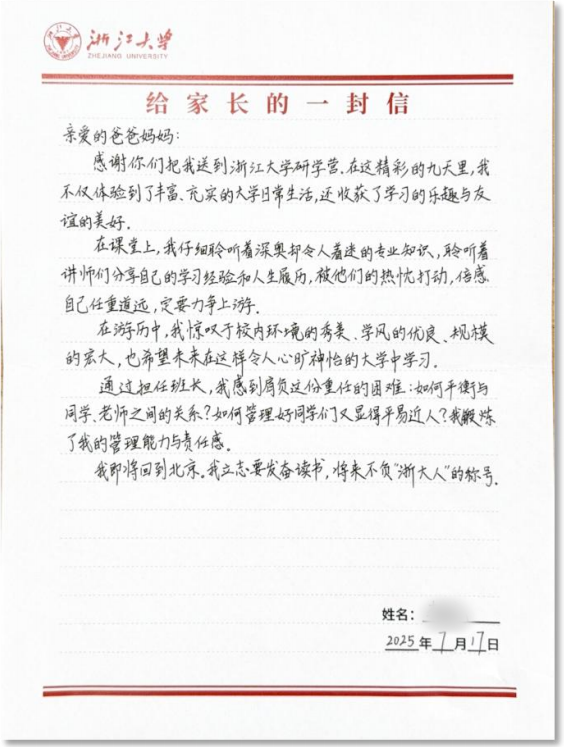 浙江大学
ZHEJIANG UNIVERSITY
给家长的一封信
亲爱的爸爸妈妈：
感谢你们把我送到浙江大学研学营.在这精彩的九天里,我
不仅体验到了丰富、充实的大学日常生活,还收获了学习的乐趣与友
谊的美好.
在课堂上,我仔细聆听着深奥却令人着迷的专业知识,聆听着
讲师们分享自己的学习经验和人生履历,被他们的热忱打动,倍感
自己任重道远,定要力争上游.
在游历中,我惊叹于校内环境的秀美、学风的优良、规模
的宏大,也希望未来在这样令人心旷神怡的大学中学习.
通过担任班长,我感到肩负这份重任的困难:如何平衡与
同学、老师之间的关系?如何管理好同学们又显得平易近人?我锻炼
了我的管理能力与责任感。
我即将回到北京。我立志要发奋读书,将来不负“浙大人”的称号.
姓名：
2025年7月17日